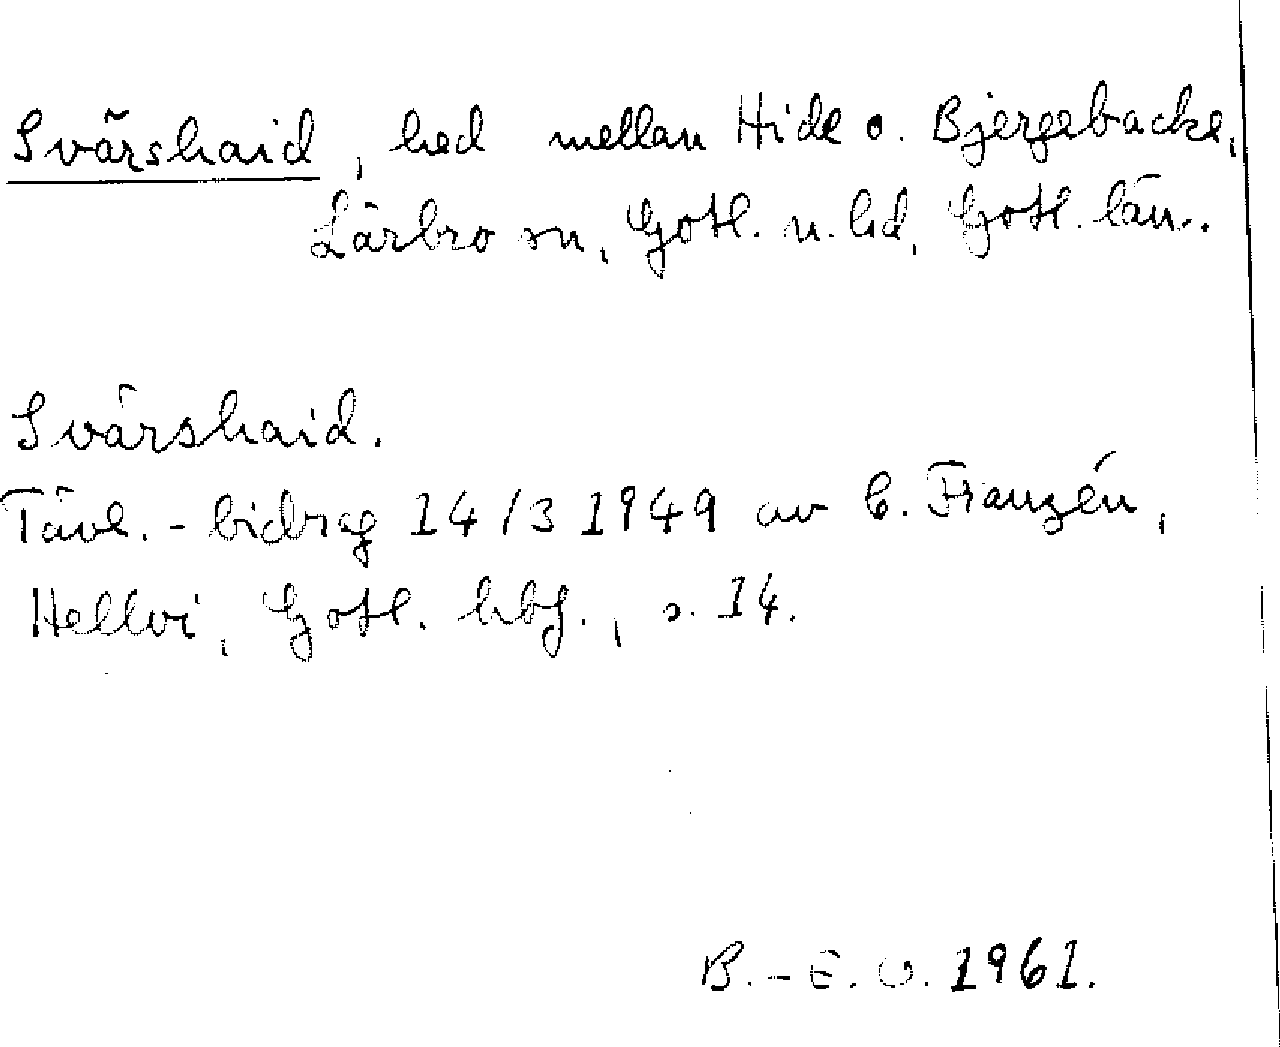 Svärshaid, hed mellan Hide o. Bjergebacke,
Lärbro sn, Gotl. n. hd, Gotl. län.
Svärshaid.
Tävl.-bidrag 14/3 1949 av C. Franzén,
Hellvi, Gotl. hbf., s. 14.
B.-E. O. 1961.